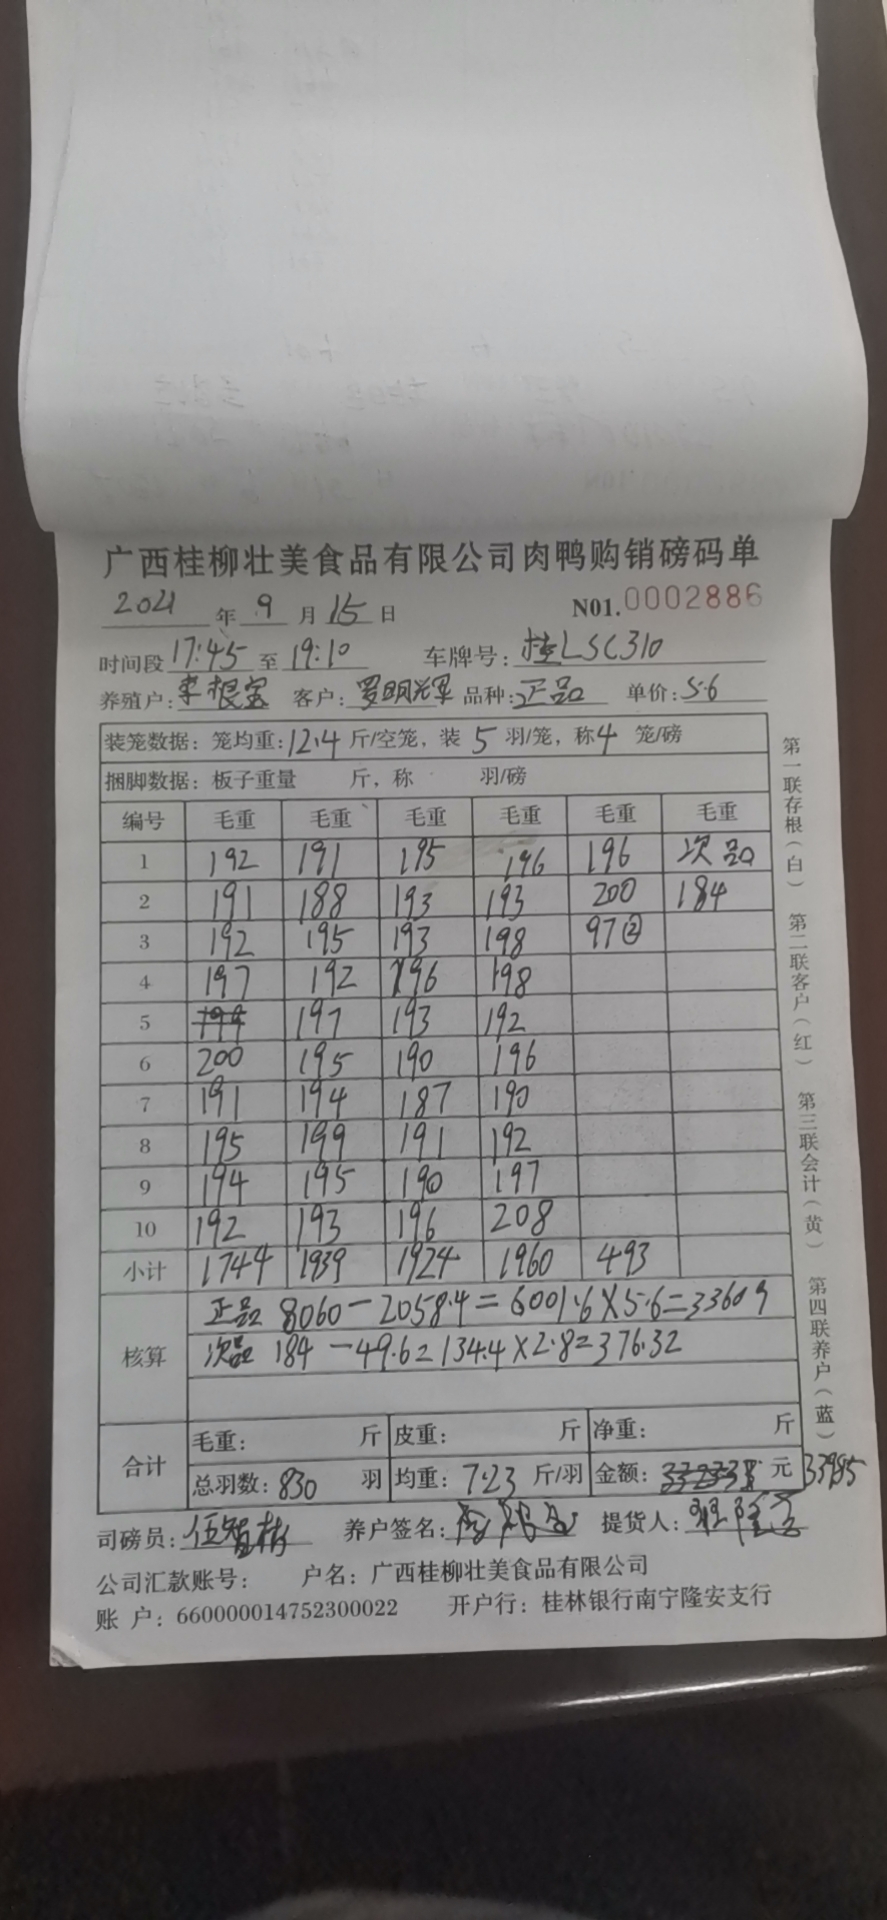 广西桂柳壮美食品有限公司肉鸭购销磅码单
2021 年 9 月 15 日 N01. 0002886
时间段 17:45 至 19:10 车牌号: 桂LSC310
养殖户: 李根宝 客户: 罗明辉 品种: 正品 单价: 5.6
装笼数据: 笼均重: 12.4 斤/空笼, 装 5 羽/笼, 称 4 笼/磅
捆脚数据: 板子重量 斤, 称 羽/磅
编号 毛重 毛重 毛重 毛重 毛重 毛重
1 192 191 195 196 196 次品
2 191 188 193 193 200 184
3 192 195 193 198 97②
4 197 192 196 198
5 199 197 193 192
6 200 195 190 196
7 191 194 187 190
8 195 199 191 192
9 194 195 190 197
10 192 193 196 208
小计 1744 1939 1924 1960 493
核算 正品 8060-2058.4=6001.6×5.6=33609
次品 184-49.6=134.4×2.8=376.32
合计 毛重: 斤 皮重: 斤 净重: 斤
总羽数: 830 羽 均重: 7.23 斤/羽 金额: 元 33985
司磅员: 养户签名: 提货人:
公司汇款账号: 户名: 广西桂柳壮美食品有限公司
账 户: 660000014752300022 开户行: 桂林银行南宁隆安支行
第一联存根(白) 第二联客户(红) 第三联会计(黄) 第四联养户(蓝)